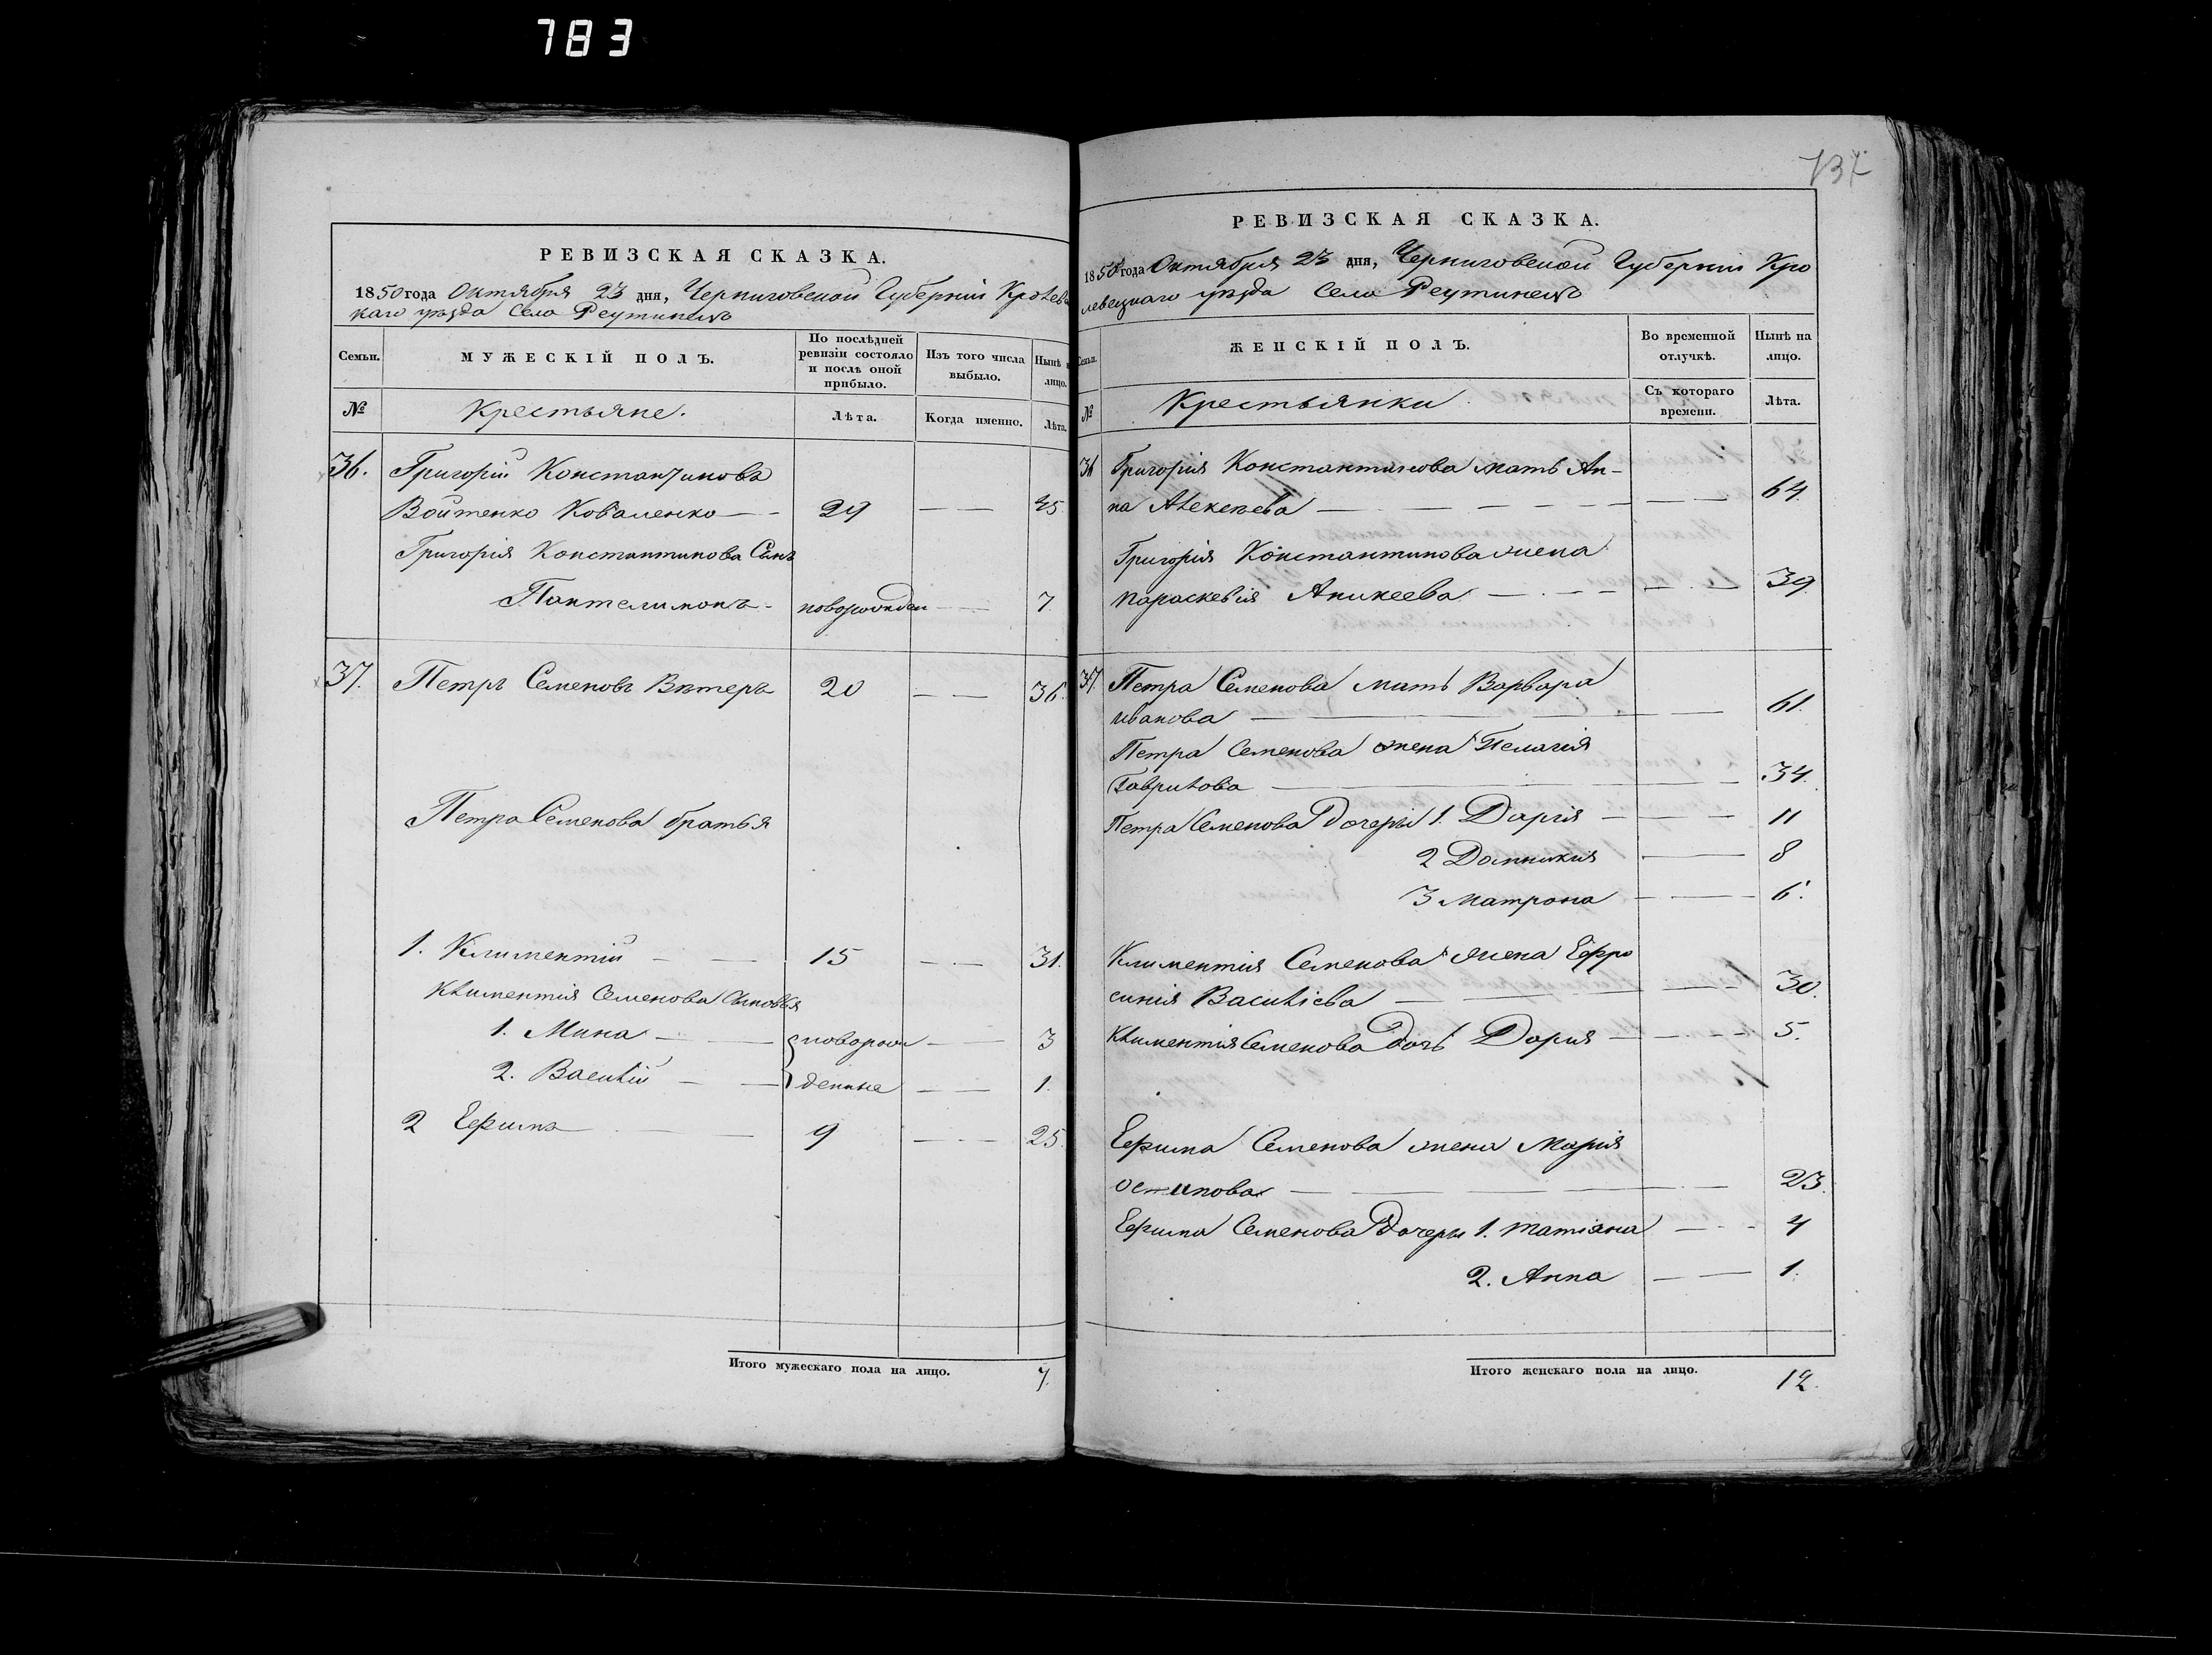 783
РЕВИЗСКАЯ СКАЗКА.
1850 года Октября 23 дня, Черниговской Губерніи Кролевец
каго уѣзда Села Реутинецъ
Семьи.
МУЖЕСКІЙ ПОЛЪ.
По послѣдней ревизіи состояло и послѣ оной прибыло.
Изъ того числа выбыло.
Нынѣ на лицо.
№
Крестьяне.
Лѣта.
Когда именно.
Лѣта.
36. Григорій Константиновъ
Войтенко Коваленко — 29 — — 45
Григорія Константинова Сынъ
Пантелимонъ - новорожден — — 7.
37. Петръ Семеновъ Вѣтеръ 20 — — 36.
Петра Семенова братья
1. Климентій — — 15 — — 31.
Климентія Семенова Сыновья
1. Мина — новорож — 3
2. Василій — — денные — — 1.
2 Ефимъ — 9 — — 25.
Итого мужескаго пола на лицо. 7.
737
РЕВИЗСКАЯ СКАЗКА.
1850 года Октября 23 дня, Черниговской Губерніи Кро
левецкаго уѣзда Села Реутинецъ
Семьи.
ЖЕНСКІЙ ПОЛЪ.
Во временной отлучкѣ.
Нынѣ на лицо.
№
Крестьянки
Съ котораго времени.
Лѣта.
36 Григорія Константинова мать Ан-
на Алексѣева — — — 64
Григорія Константинова жена
Параскевія Аникеева — — — 39
37. Петра Семенова мать Варвара
Иванова — — 61.
Петра Семенова жена Пелагія
Гаврилова — — 34.
Петра Семенова Дочери 1. Дарія — — 11
2 Домникия — — 8
3 Матрона — — 6.
Климентія Семенова жена Ефро
синія Василіева — — 30.
Климентія Семенова Дочь Дарія — — 5.
Ефима Семенова жена Марія
Осипова — — 23.
Ефима Семенова Дочери 1. Татіана — — 4
2. Анна — — 1.
Итого женскаго пола на лицо. 12.